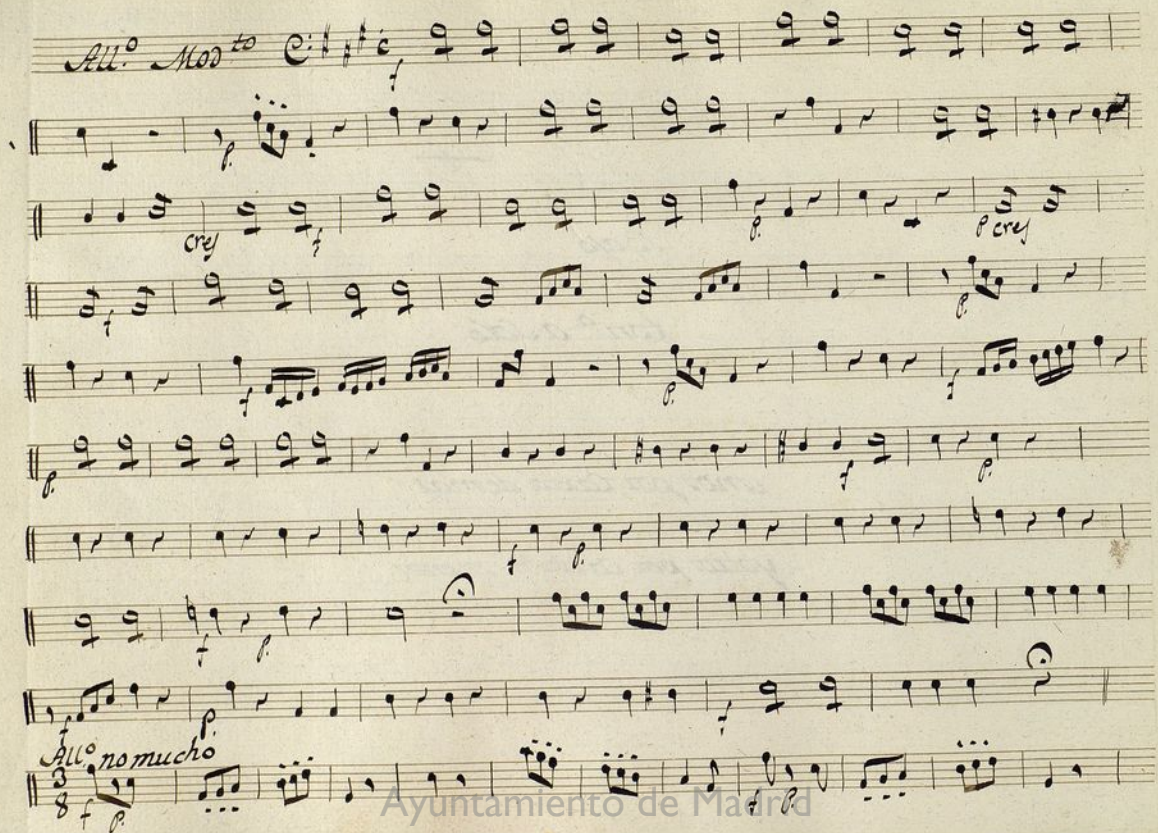 All.º Mod.to C f
p.
cres f p. p cres
f p.
f p. f
p. f p.
f p.
f p.
f p. f
All.º no mucho
3 8 f p. f p.
Ayuntamiento de Madrid